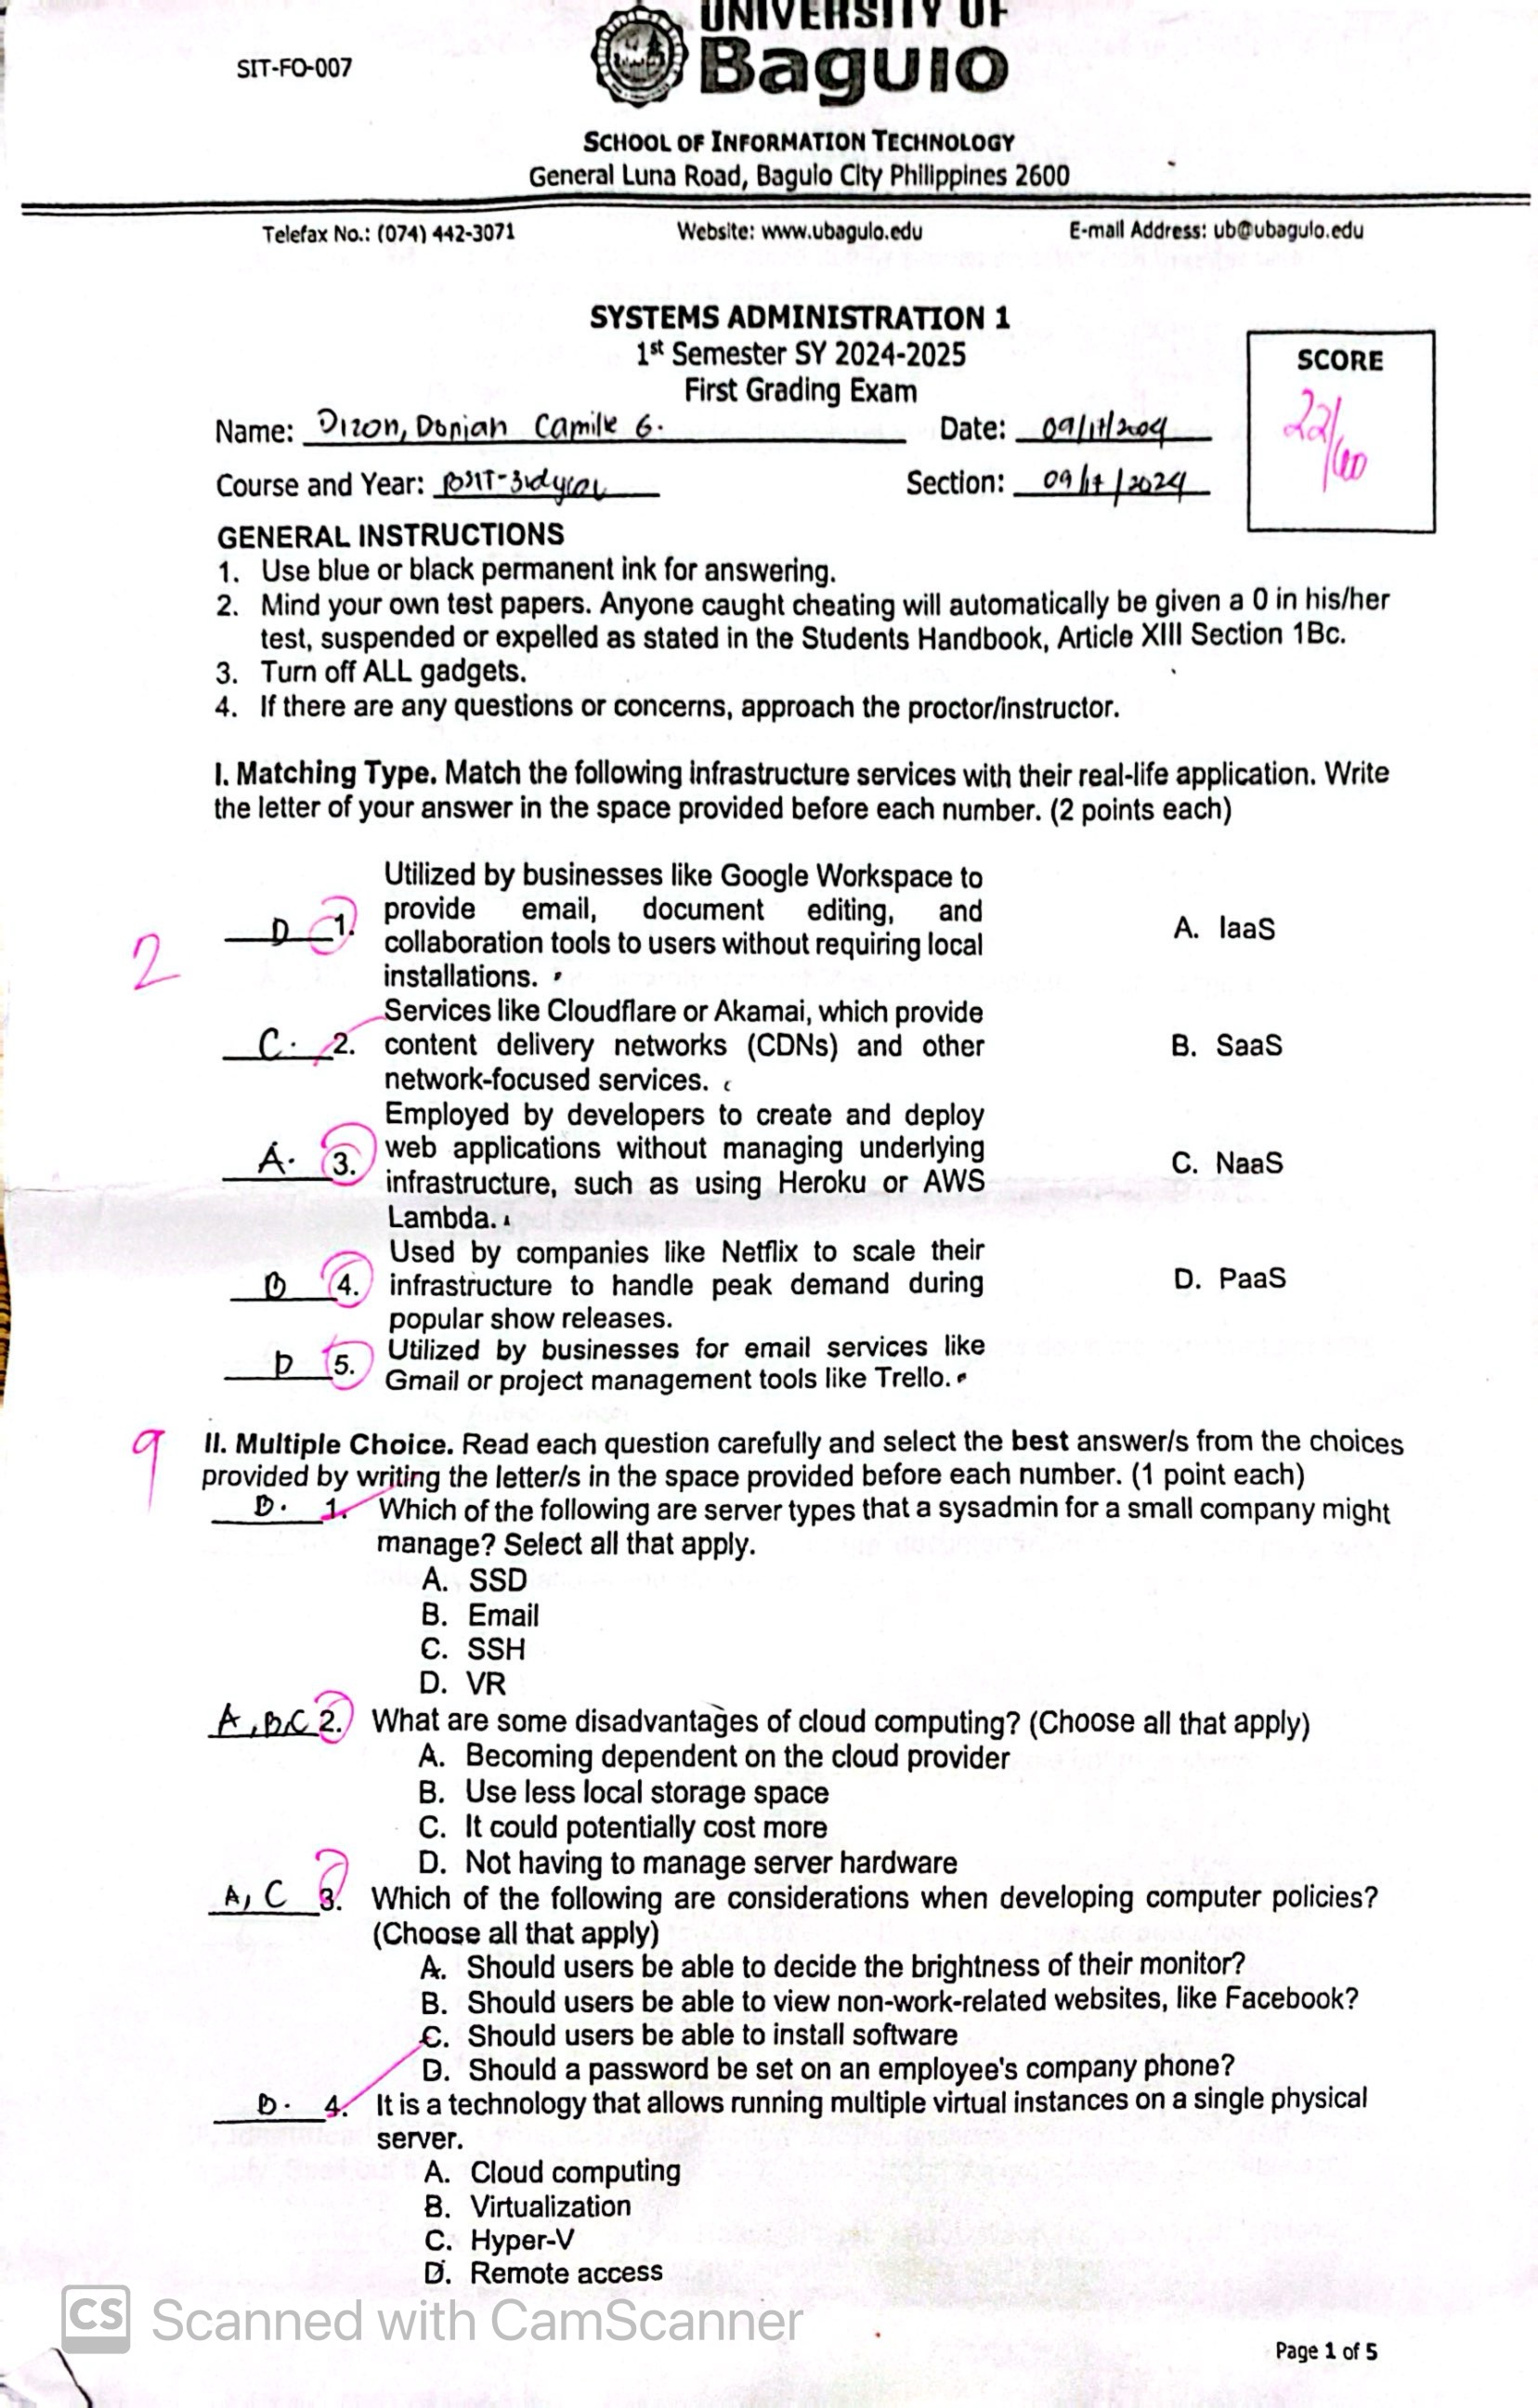 UNIVERSITY OF
Baguio
SIT-FO-007
SCHOOL OF INFORMATION TECHNOLOGY
General Luna Road, Baguio City Philippines 2600
Telefax No.: (074) 442-3071 Website: www.ubaguio.edu E-mail Address: ub@ubaguio.edu
SYSTEMS ADMINISTRATION 1
1st Semester SY 2024-2025
First Grading Exam
SCORE
22/60
Name: Dizon, Donjah Camille G. Date:
Course and Year: Section: 09/17/2024
GENERAL INSTRUCTIONS
1. Use blue or black permanent ink for answering.
2. Mind your own test papers. Anyone caught cheating will automatically be given a 0 in his/her
test, suspended or expelled as stated in the Students Handbook, Article XIII Section 1Bc.
3. Turn off ALL gadgets.
4. If there are any questions or concerns, approach the proctor/instructor.
I. Matching Type. Match the following infrastructure services with their real-life application. Write
the letter of your answer in the space provided before each number. (2 points each)
2
Utilized by businesses like Google Workspace to
D 1. provide email, document editing, and A. IaaS
collaboration tools to users without requiring local
installations.
Services like Cloudflare or Akamai, which provide
C. 2. content delivery networks (CDNs) and other B. SaaS
network-focused services.
Employed by developers to create and deploy
A. 3. web applications without managing underlying C. NaaS
infrastructure, such as using Heroku or AWS
Lambda.
Used by companies like Netflix to scale their
4. infrastructure to handle peak demand during D. PaaS
popular show releases.
Utilized by businesses for email services like
D 5. Gmail or project management tools like Trello.
9
II. Multiple Choice. Read each question carefully and select the best answer/s from the choices
provided by writing the letter/s in the space provided before each number. (1 point each)
B. 1. Which of the following are server types that a sysadmin for a small company might
manage? Select all that apply.
A. SSD
B. Email
C. SSH
D. VR
A, B, C 2. What are some disadvantages of cloud computing? (Choose all that apply)
A. Becoming dependent on the cloud provider
B. Use less local storage space
C. It could potentially cost more
D. Not having to manage server hardware
A, C 3. Which of the following are considerations when developing computer policies?
(Choose all that apply)
A. Should users be able to decide the brightness of their monitor?
B. Should users be able to view non-work-related websites, like Facebook?
C. Should users be able to install software
D. Should a password be set on an employee's company phone?
B. 4. It is a technology that allows running multiple virtual instances on a single physical
server.
A. Cloud computing
B. Virtualization
C. Hyper-V
D. Remote access
CS Scanned with CamScanner
Page 1 of 5